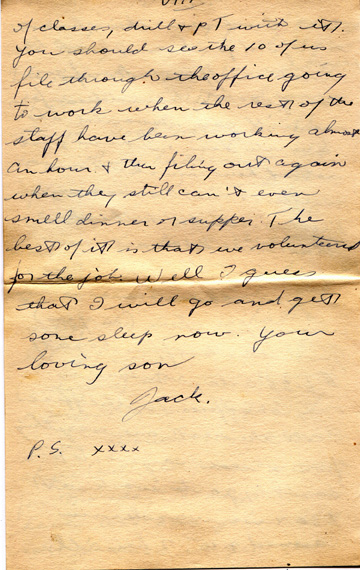 VIII
of classes, drill & PT with it.
You should see the 10 of us
file through the office going
to work when the rest of the
staff have been working almost
an hour & then filing out again
when they still can't even
smell dinner or supper. The
best of it is that we volunteered
for the job. Well I guess
that I will go and get
some sleep now. Your
loving son
Jack.
P.S. xxxx